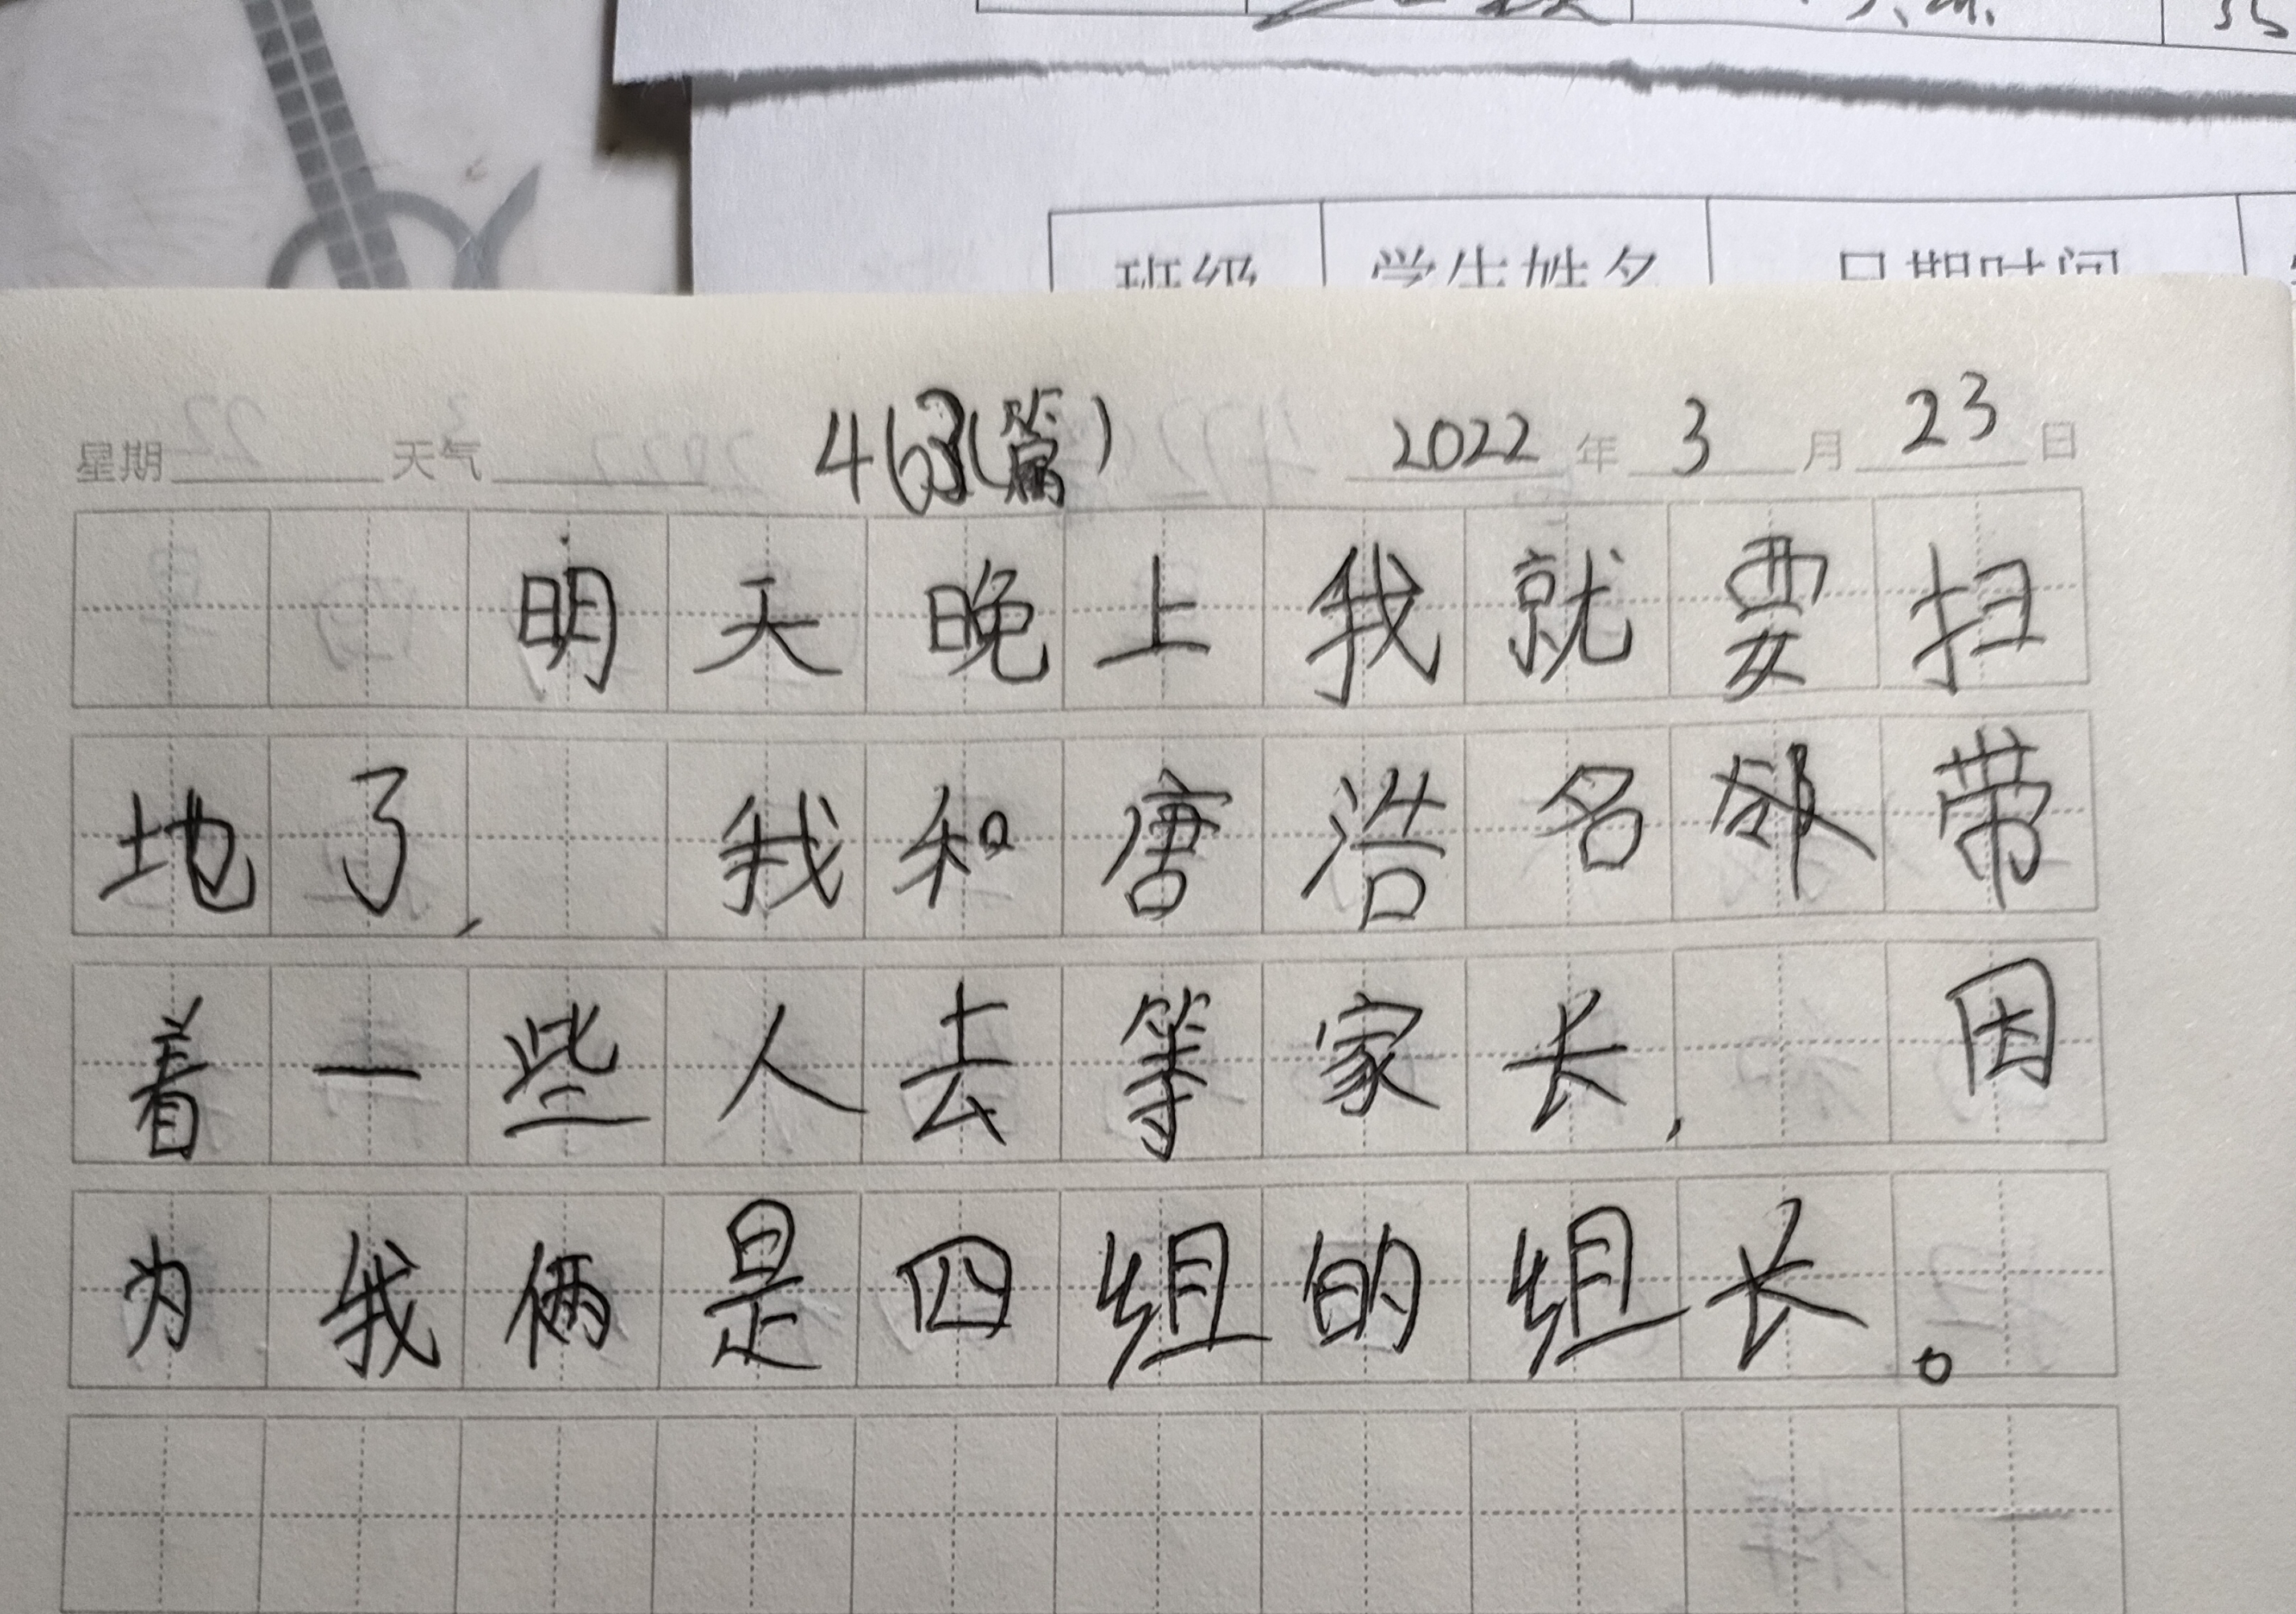 班级 学生姓名 日期时间
星期 天气 (篇) 2022年3月23日
明天晚上我就要扫
地了，我和唐浩名都带
着一些人去等家长，因
为我俩是四组的组长。